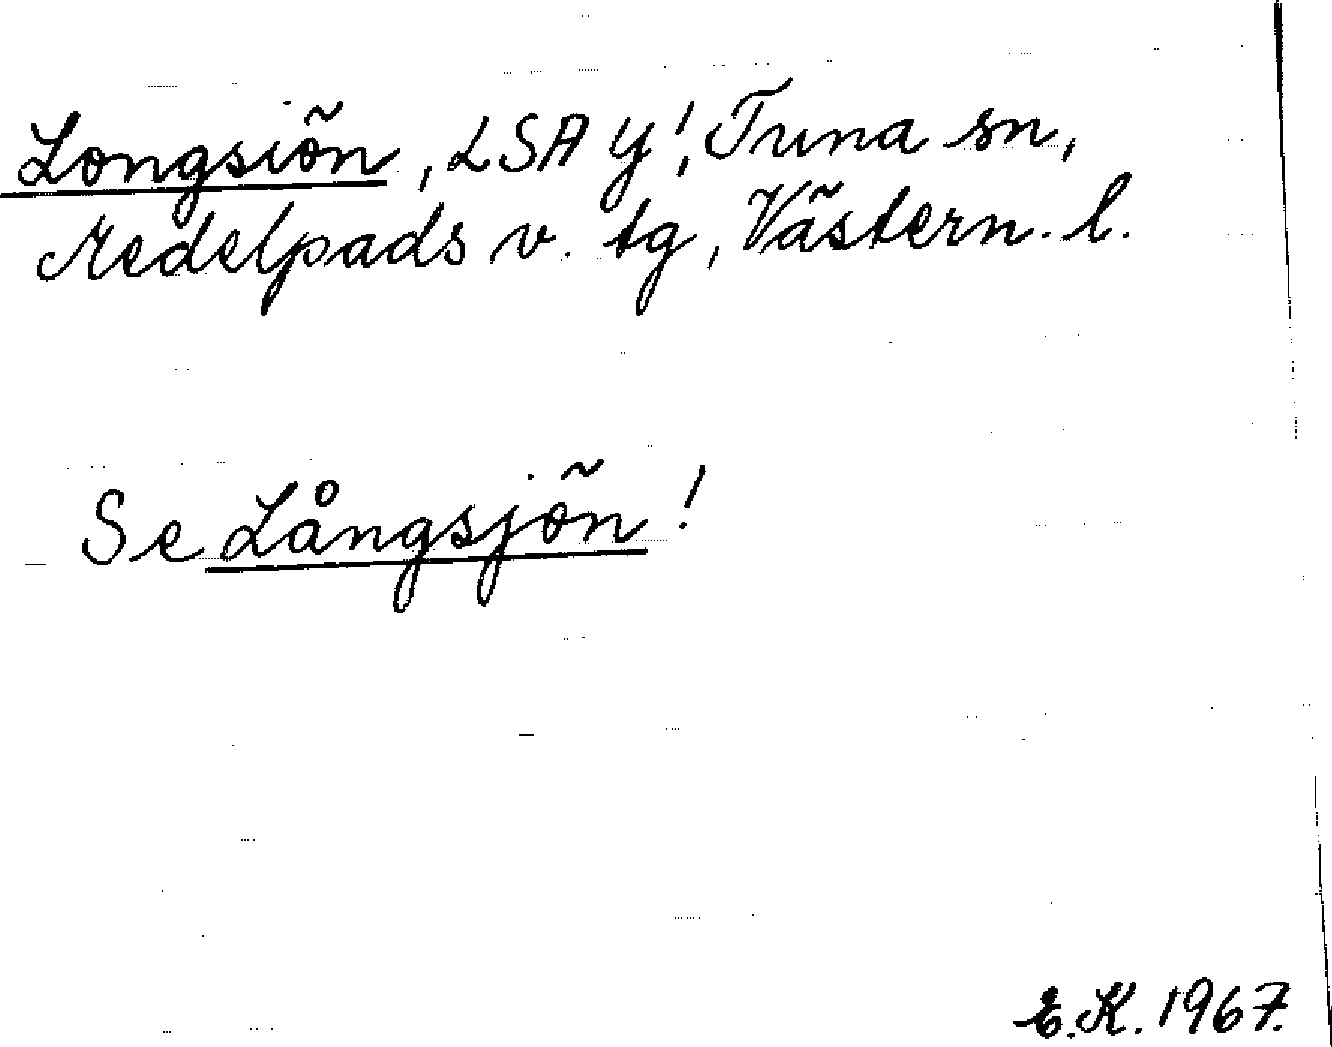 Longsiön, LSA Y¹, Tuna sn,
Medelpads v. tg, Västern. l.
Se Långsjön!
E.K. 1967.